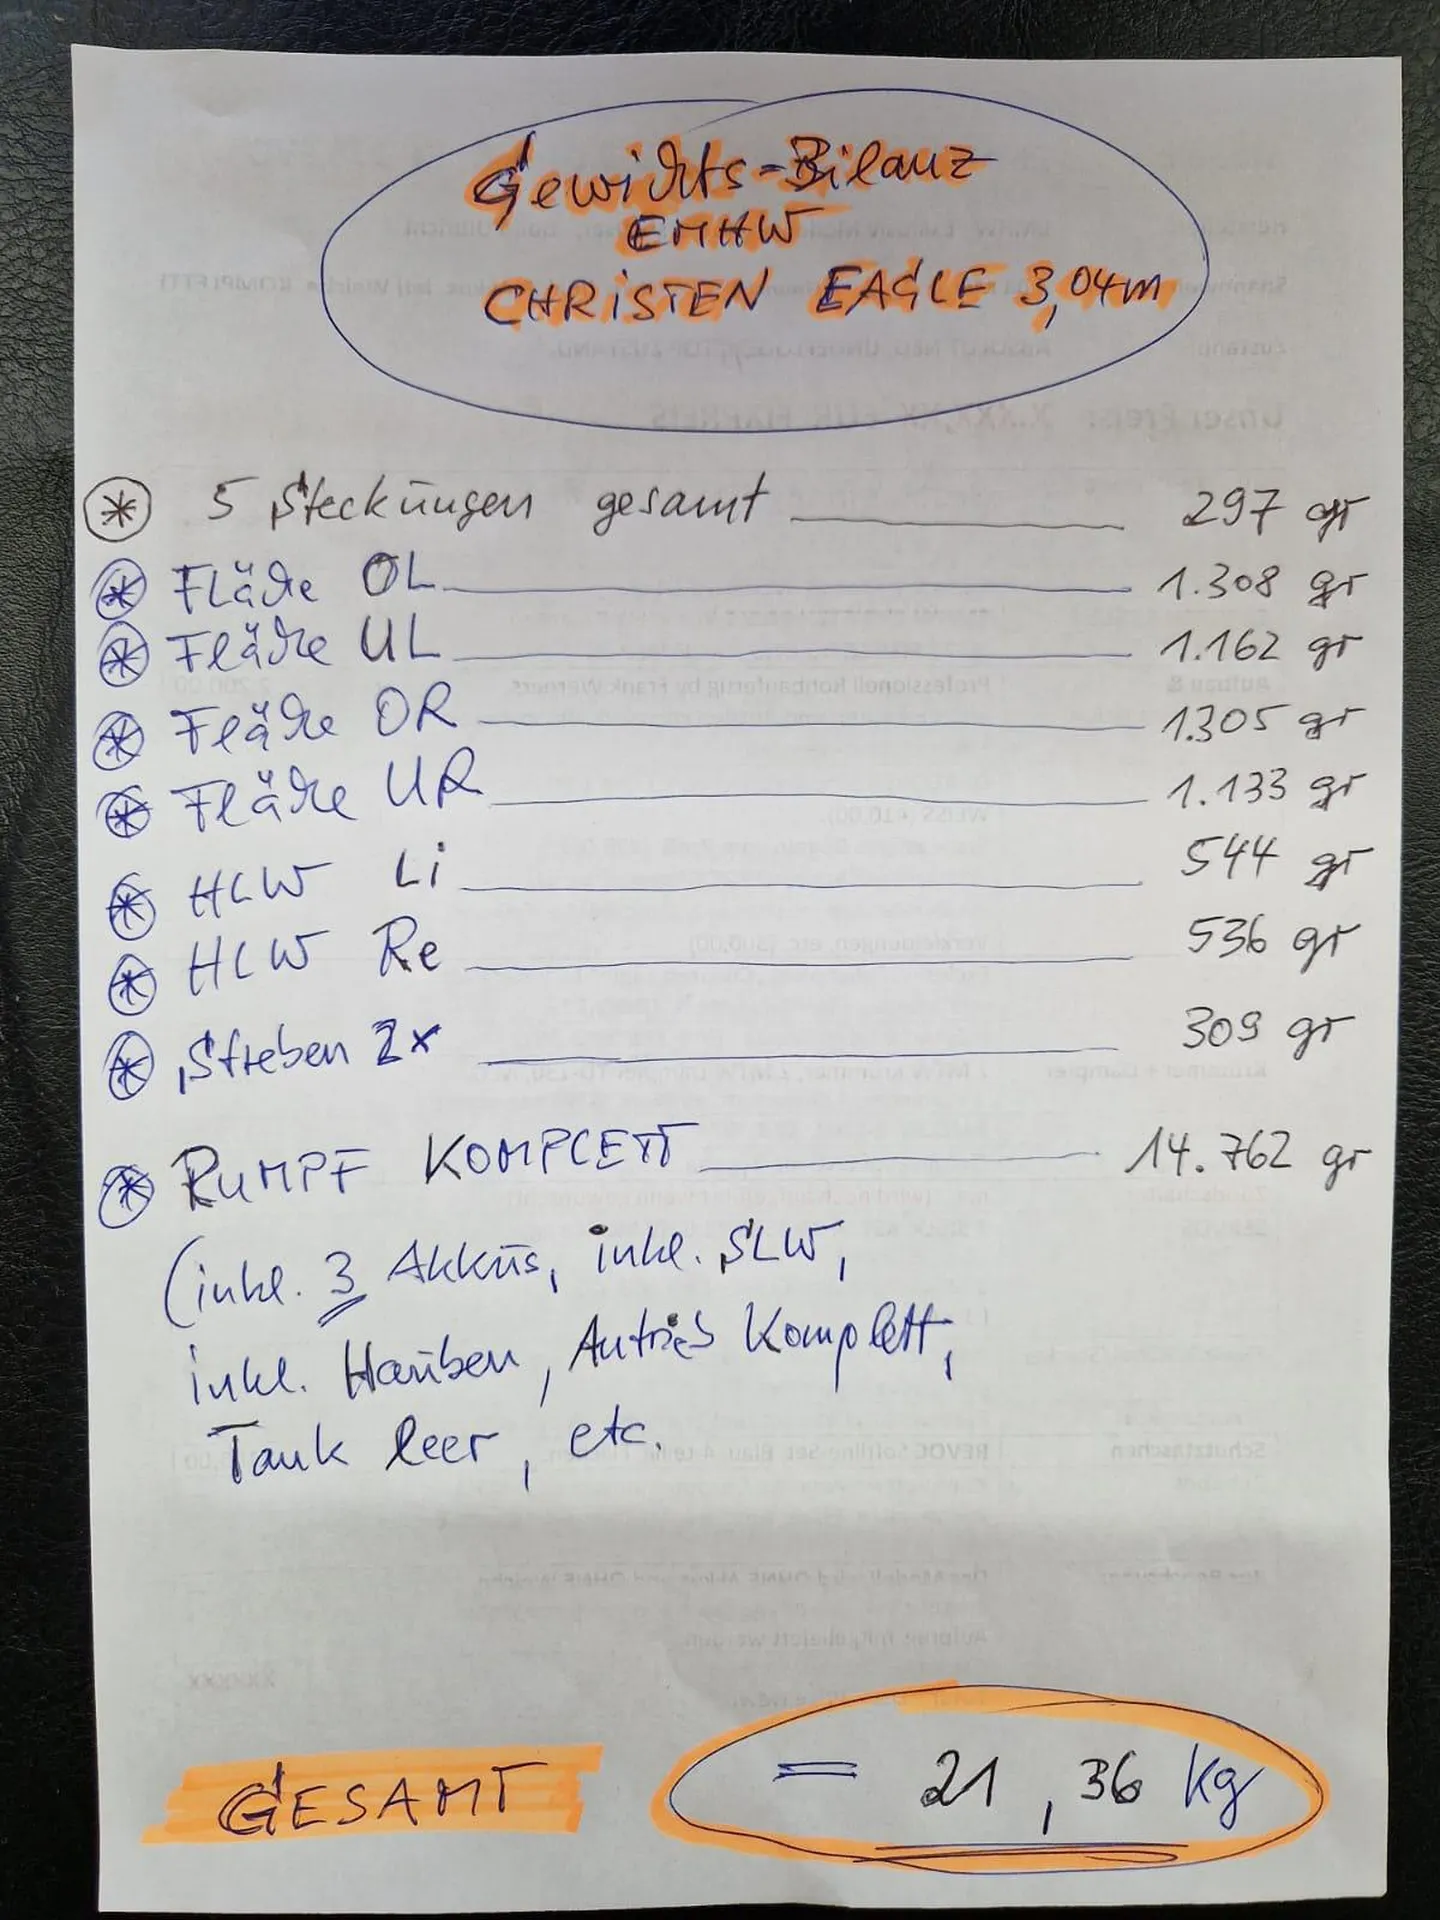 Gewichts-Bilanz
EMHW
CHRISTEN EAGLE 3,04m
5 Steckungen gesamt 297 gr
Fläche OL 1.308 gr
Fläche UL 1.162 gr
Fläche OR 1.305 gr
Fläche UR 1.133 gr
HLW Li 544 gr
HLW Re 536 gr
Streben 2x 309 gr
RUMPF KOMPLETT 14.762 gr
(inkl. 3 Akkus, inkl. SLW,
inkl. Hauben, Antrieb Komplett,
Tank leer, etc.
GESAMT = 21,36 kg